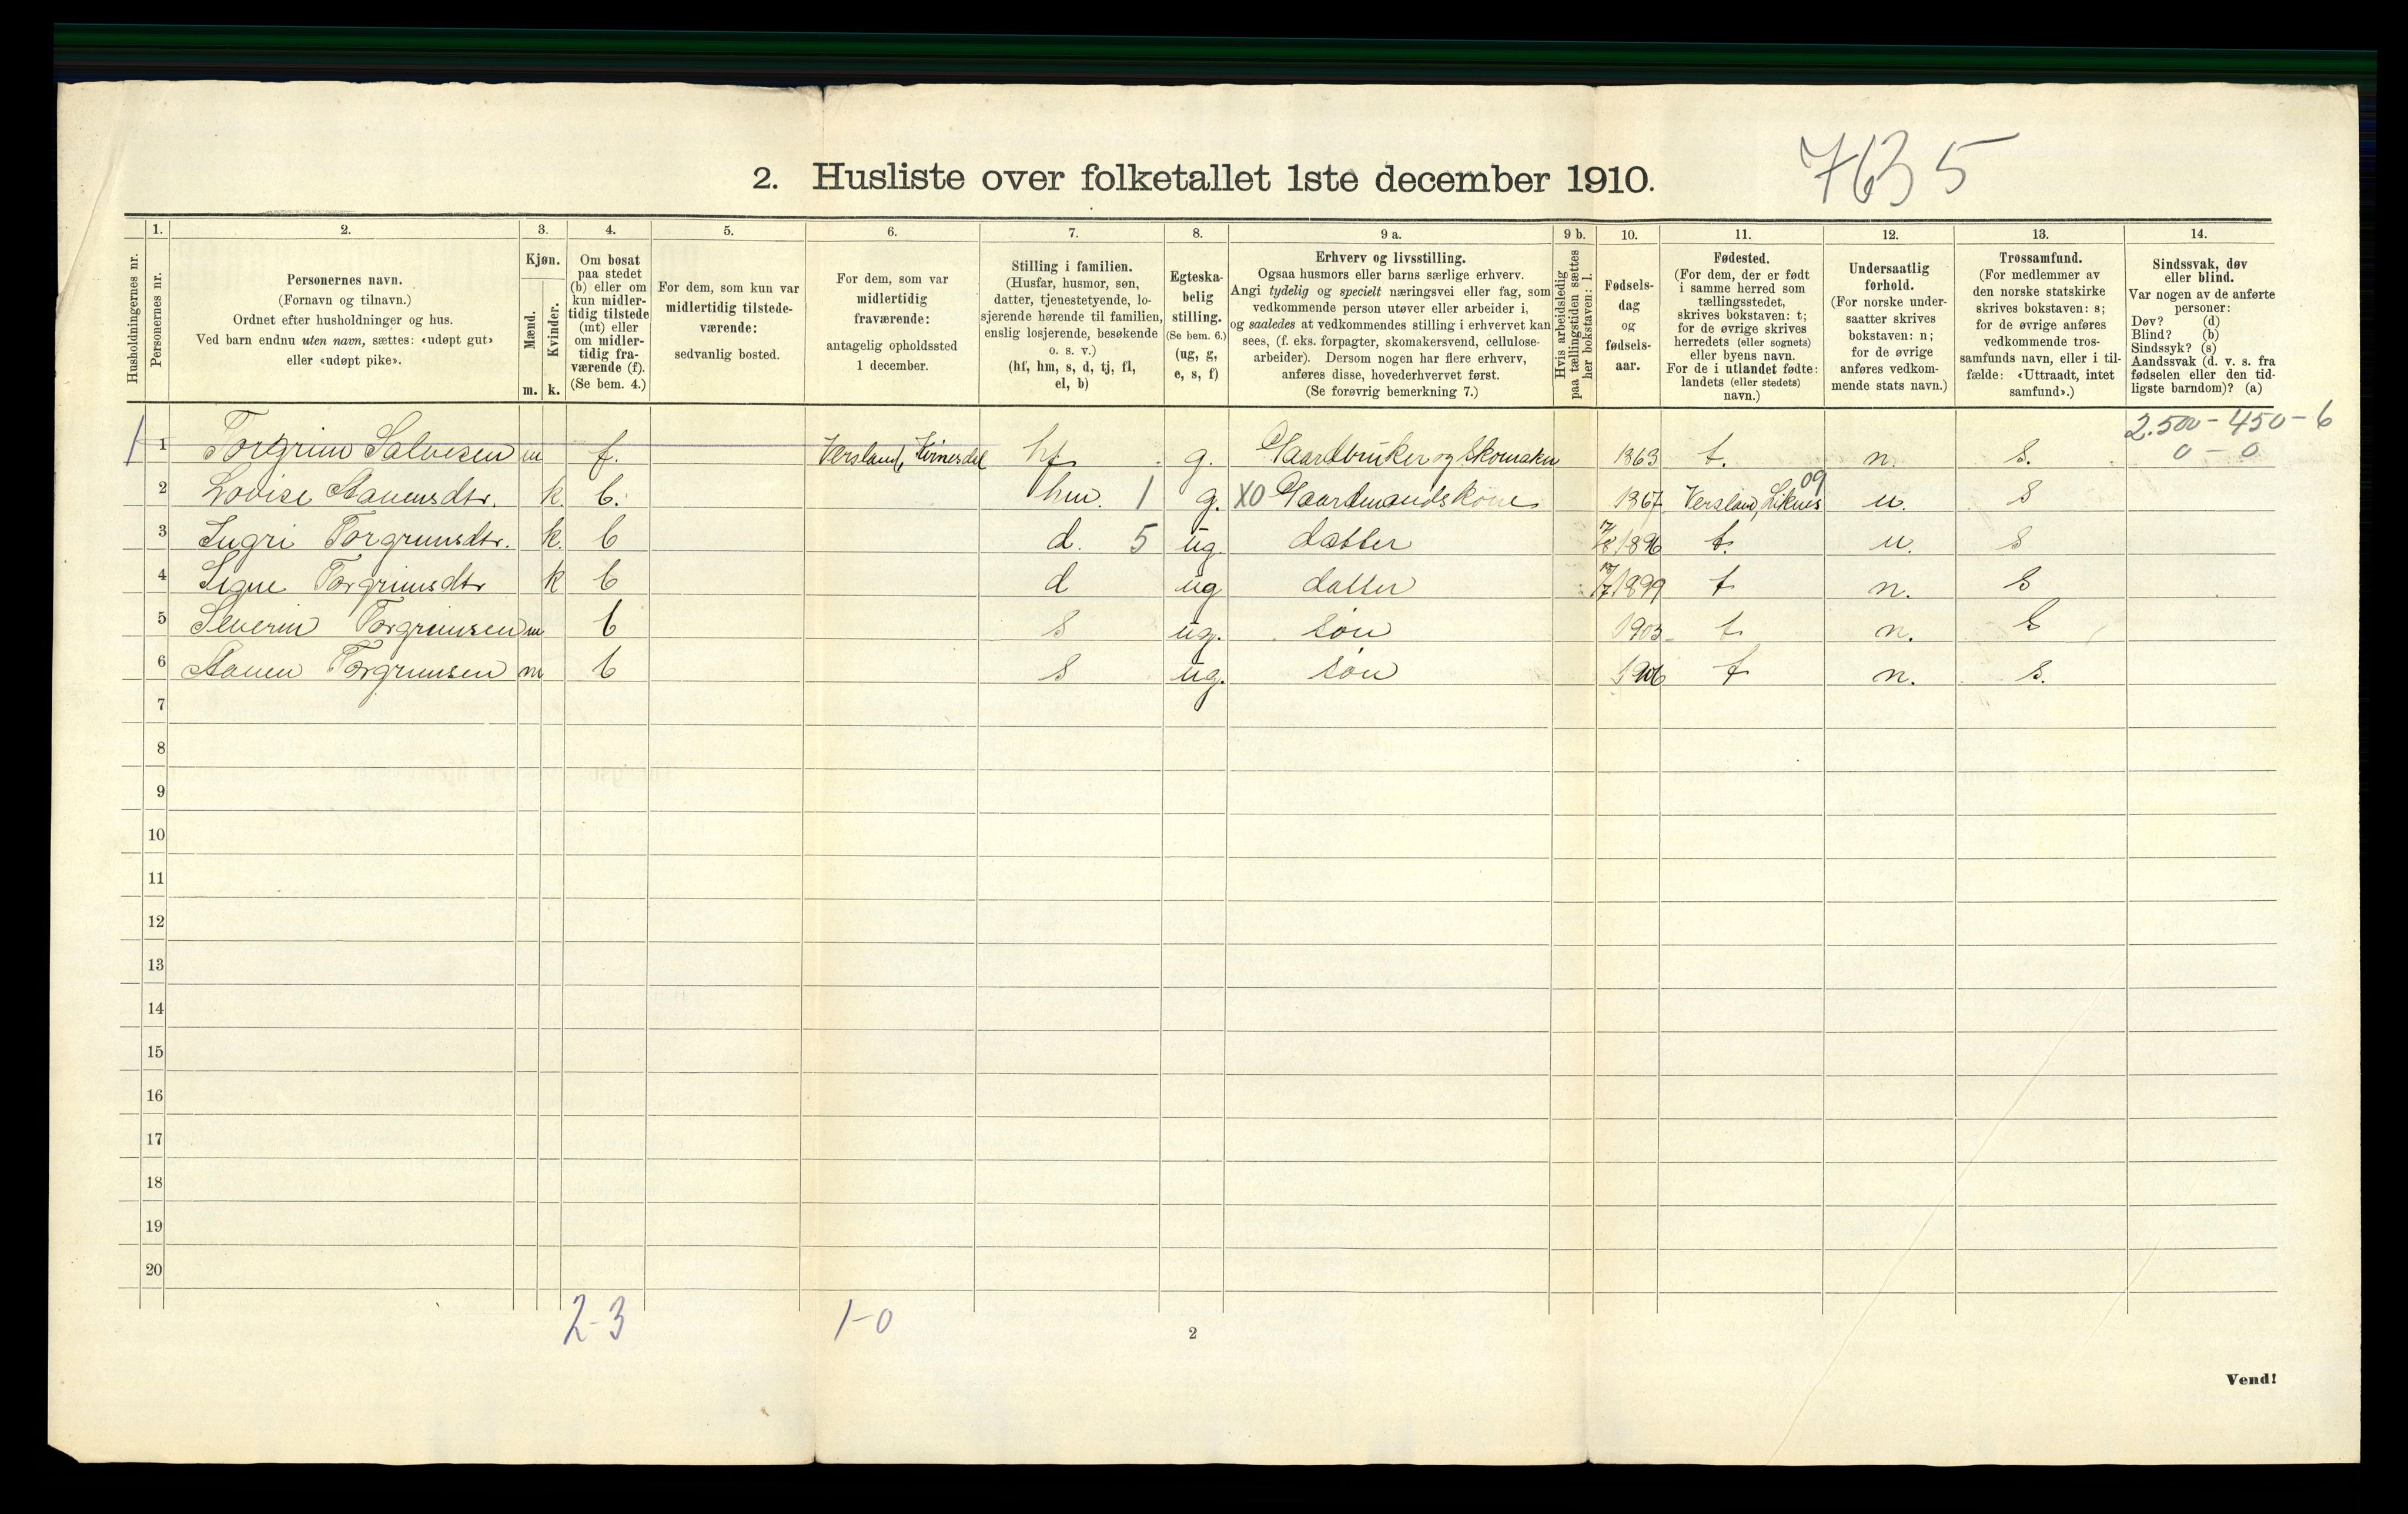 2. Husliste over folketallet 1ste december 1910.
7635
Husholdningernes nr.
1.
Personernes nr.
2.
Personernes navn.
(Fornavn og tilnavn.)
Ordnet efter husholdninger og hus.
Ved barn endnu uten navn, sættes: «udøpt gut»
eller «udøpt pike».
3.
Kjøn.
Mænd.
Kvinder.
m. k.
4.
Om bosat
paa stedet
(b) eller om
kun midler-
tidig tilstede
(mt) eller
om midler-
tidig fra-
værende (f).
(Se bem. 4.)
5.
For dem, som kun var
midlertidig tilstede-
værende:
sedvanlig bosted.
6.
For dem, som var
midlertidig
fraværende:
antagelig opholdssted
1 december.
7.
Stilling i familien.
(Husfar, husmor, søn,
datter, tjenestetyende, lo-
sjerende hørende til familien,
enslig losjerende, besøkende
o. s. v.)
(hf, hm, s, d, tj, fl,
el, b)
8.
Egteska-
belig
stilling.
(Se bem. 6.)
(ug, g,
e, s, f)
9 a.
Erhverv og livsstilling.
Ogsaa husmors eller barns særlige erhverv.
Angi tydelig og specielt næringsvei eller fag, som
vedkommende person utøver eller arbeider i,
og saaledes at vedkommendes stilling i erhvervet kan
sees, (f. eks. forpagter, skomakersvend, cellulose-
arbeider). Dersom nogen har flere erhverv,
anføres disse, hovederhvervet først.
(Se forøvrig bemerkning 7.)
9 b.
Hvis arbeidsledig
paa tællingstiden sættes
her bokstaven: l.
10.
Fødsels-
dag
og
fødsels-
aar.
11.
Fødested.
(For dem, der er født
i samme herred som
tællingsstedet,
skrives bokstaven: t;
for de øvrige skrives
herredets (eller sognets)
eller byens navn.
For de i utlandet fødte:
landets (eller stedets)
navn.)
12.
Undersaatlig
forhold.
(For norske under-
saatter skrives
bokstaven: n;
for de øvrige
anføres vedkom-
mende stats navn.)
13.
Trossamfund.
(For medlemmer av
den norske statskirke
skrives bokstaven: s;
for de øvrige anføres
vedkommende tros-
samfunds navn, eller i til-
fælde: «Uttraadt, intet
samfund».)
14.
Sindssvak, døv
eller blind.
Var nogen av de anførte
personer:
Døv? (d)
Blind? (b)
Sindssyk? (s)
Aandssvak (d. v. s. fra
fødselen eller den tid-
ligste barndom)? (a)
2.500 - 450 - 6
0 - 0
1 1 Torgrim Salvesen m f. Versland, Kvinesdal hf g. Gaardbruker og Skomaker 1863 t. n. s.
2 Lovise Aanensdtr. k. b. hm. 1 g. XO Gaardmandskone 1867 Versland, Liknes 09 n. s
3 Ingri Torgrimsdtr. k. b d. 5 ug. datter 1896 t. n. s
4 Signe Torgrimsdtr k b d ug datter 1899 t n. s
5 Severin Torgrimsen m b s ug. søn 1903 t n. s
6 Aanen Torgrimsen m b s ug. søn 1906 t n. s.
7
8
9
10
11
12
13
14
15
16
17
18
19
20
2-3 1-0
2
Vend!